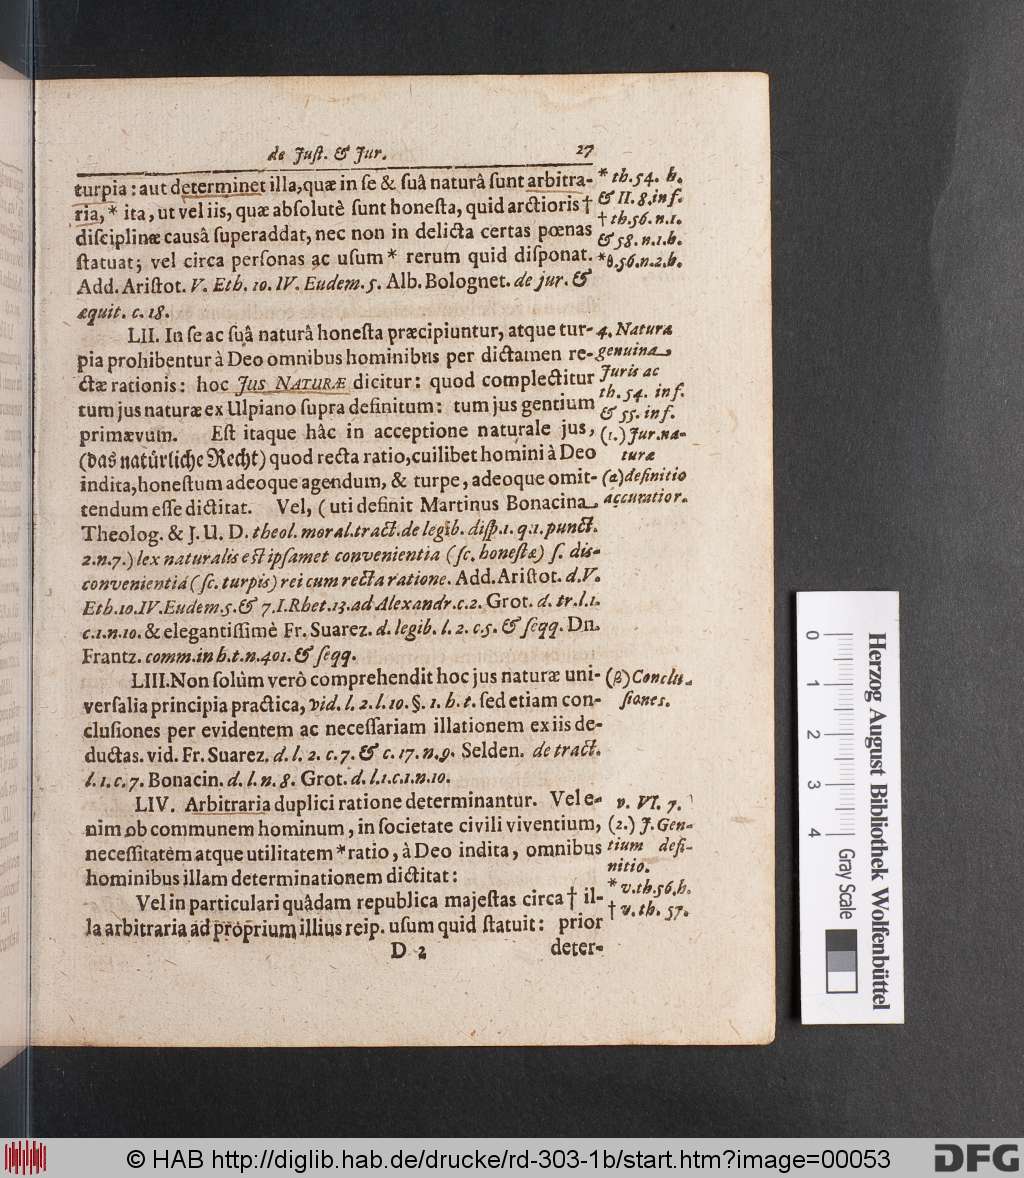 de Juſt. & Jur. 27
turpia: aut determinet illa, quæ in ſe & ſuâ naturâ ſunt arbitra-
ria, * ita, ut vel iis, quæ abſolutè ſunt honeſta, quid arctioris †
diſciplinæ causâ ſuperaddat, nec non in delicta certas pœnas
ſtatuat; vel circa perſonas ac uſum * rerum quid diſponat.
Add. Ariſtot. V. Eth. 10. IV. Eudem. 5. Alb. Bolognet. de jur. &
æquit. c. 18.
* th. 54. h.
& II. 8. inf.
† th. 56. n. 1.
& 58. n. 1. h.
* θ. 56. n. 2. h.
LII. In ſe ac ſuâ naturâ honeſta præcipiuntur, atque tur-
pia prohibentur à Deo omnibus hominibus per dictamen re-
ctæ rationis: hoc Jus NATURÆ dicitur: quod complectitur
tum jus naturæ ex Ulpiano ſupra definitum: tum jus gentium
primævum. Eſt itaque hâc in acceptione naturale jus,
(das natürliche Recht) quod recta ratio, cuilibet homini à Deo
indita, honeſtum adeoque agendum, & turpe, adeoque omit-
tendum eſſe dictitat. Vel, (uti definit Martinus Bonacina
Theolog. & J. U. D. theol. moral. tract. de legib. diſp. 1. q. 1. punct.
2. n. 7.) lex naturalis eſt ipſamet convenientia (ſc. honeſtæ) ſ. dis-
convenientia (ſc. turpis) rei cum recta ratione. Add. Ariſtot. d. V.
Eth. 10. IV. Eudem. 5. & 7. I. Rhet. 13. ad Alexandr. c. 2. Grot. d. tr. l. 1.
c. 1. n. 10. & elegantiſſimè Fr. Suarez. d. legib. l. 2. c. 5. & ſeqq. Dn.
Frantz. comm. in h. t. n. 401. & ſeqq.
4. Naturæ
genuina
Juris ac
th. 54. inf.
& 55. inf.
(1.) Jur. na-
turæ
(α) definitio
accuratior.
LIII. Non ſolùm verò comprehendit hoc jus naturæ uni-
verſalia principia practica, vid. l. 2. l. 10. §. 1. h. t. ſed etiam con-
cluſiones per evidentem ac neceſſariam illationem ex iis de-
ductas. vid. Fr. Suarez. d. l. 2. c. 7. & c. 17. n. 9. Selden. de tract.
l. 1. c. 7. Bonacin. d. l. n. 8. Grot. d. l. 1. c. 1. n. 10.
(β) Conclu-
ſiones.
LIV. Arbitraria duplici ratione determinantur. Vel e-
nim ob communem hominum, in ſocietate civili viventium,
neceſſitatem atque utilitatem * ratio, à Deo indita, omnibus
hominibus illam determinationem dictitat:
Vel in particulari quâdam republica majeſtas circa † il-
la arbitraria ad proprium illius reip. uſum quid ſtatuit: prior
v. VI. 7.
(2.) J. Gen-
tium defi-
nitio.
* v. th. 56. h.
† v. th. 57.
D 2 deter-
Herzog August Bibliothek Wolfenbüttel
Gray Scale
0 1 2 3 4
© HAB http://diglib.hab.de/drucke/rd-303-1b/start.htm?image=00053
DFG